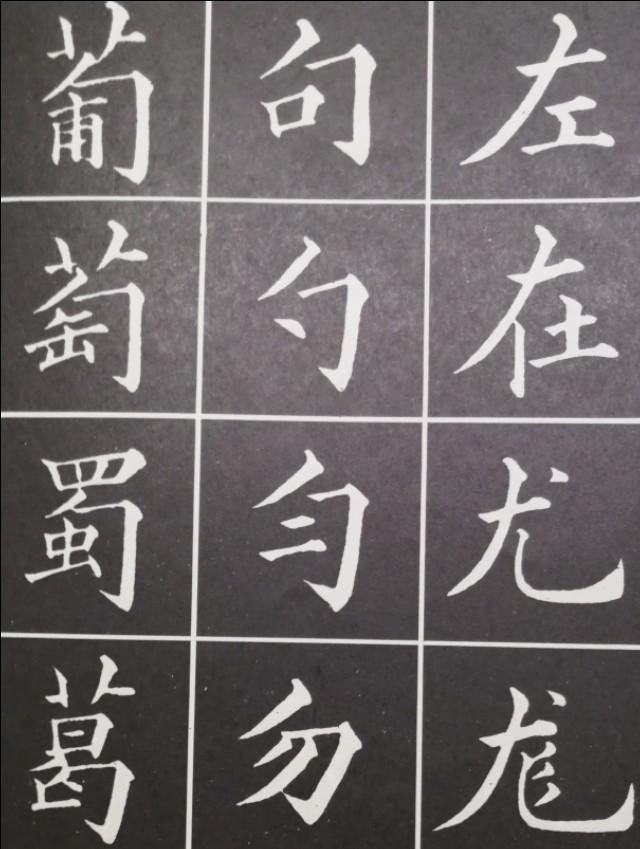 左在尤尨
句勺匀勿
葡萄蜀葛